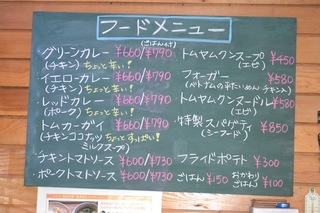 フードメニュー
(ごはん付)
グリーンカレー ¥660/¥790
(チキン) ちょっと辛い!
イエローカレー ¥660/¥790
(チキン) ちょっと辛い!
レッドカレー ¥660/¥790
(ポーク) ちょっと辛い!
トムカーガイ ¥660/¥790
(チキンココナッツミルクスープ) ちょっとすっぱい!
チキントマトソース ¥600/¥730
ポークトマトソース ¥600/¥730
トムヤムクンスープ ¥450
(エビ)
フォーガー ¥580
(ベトナムの平たいめん チキン入)
トムヤムクンヌードル ¥580
(エビ)
特製スパゲティ ¥850
(シーフード)
フライドポテト ¥300
ごはん ¥150 おかわりごはん ¥100